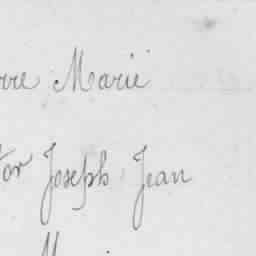 rre Marie
tor Joseph Jean